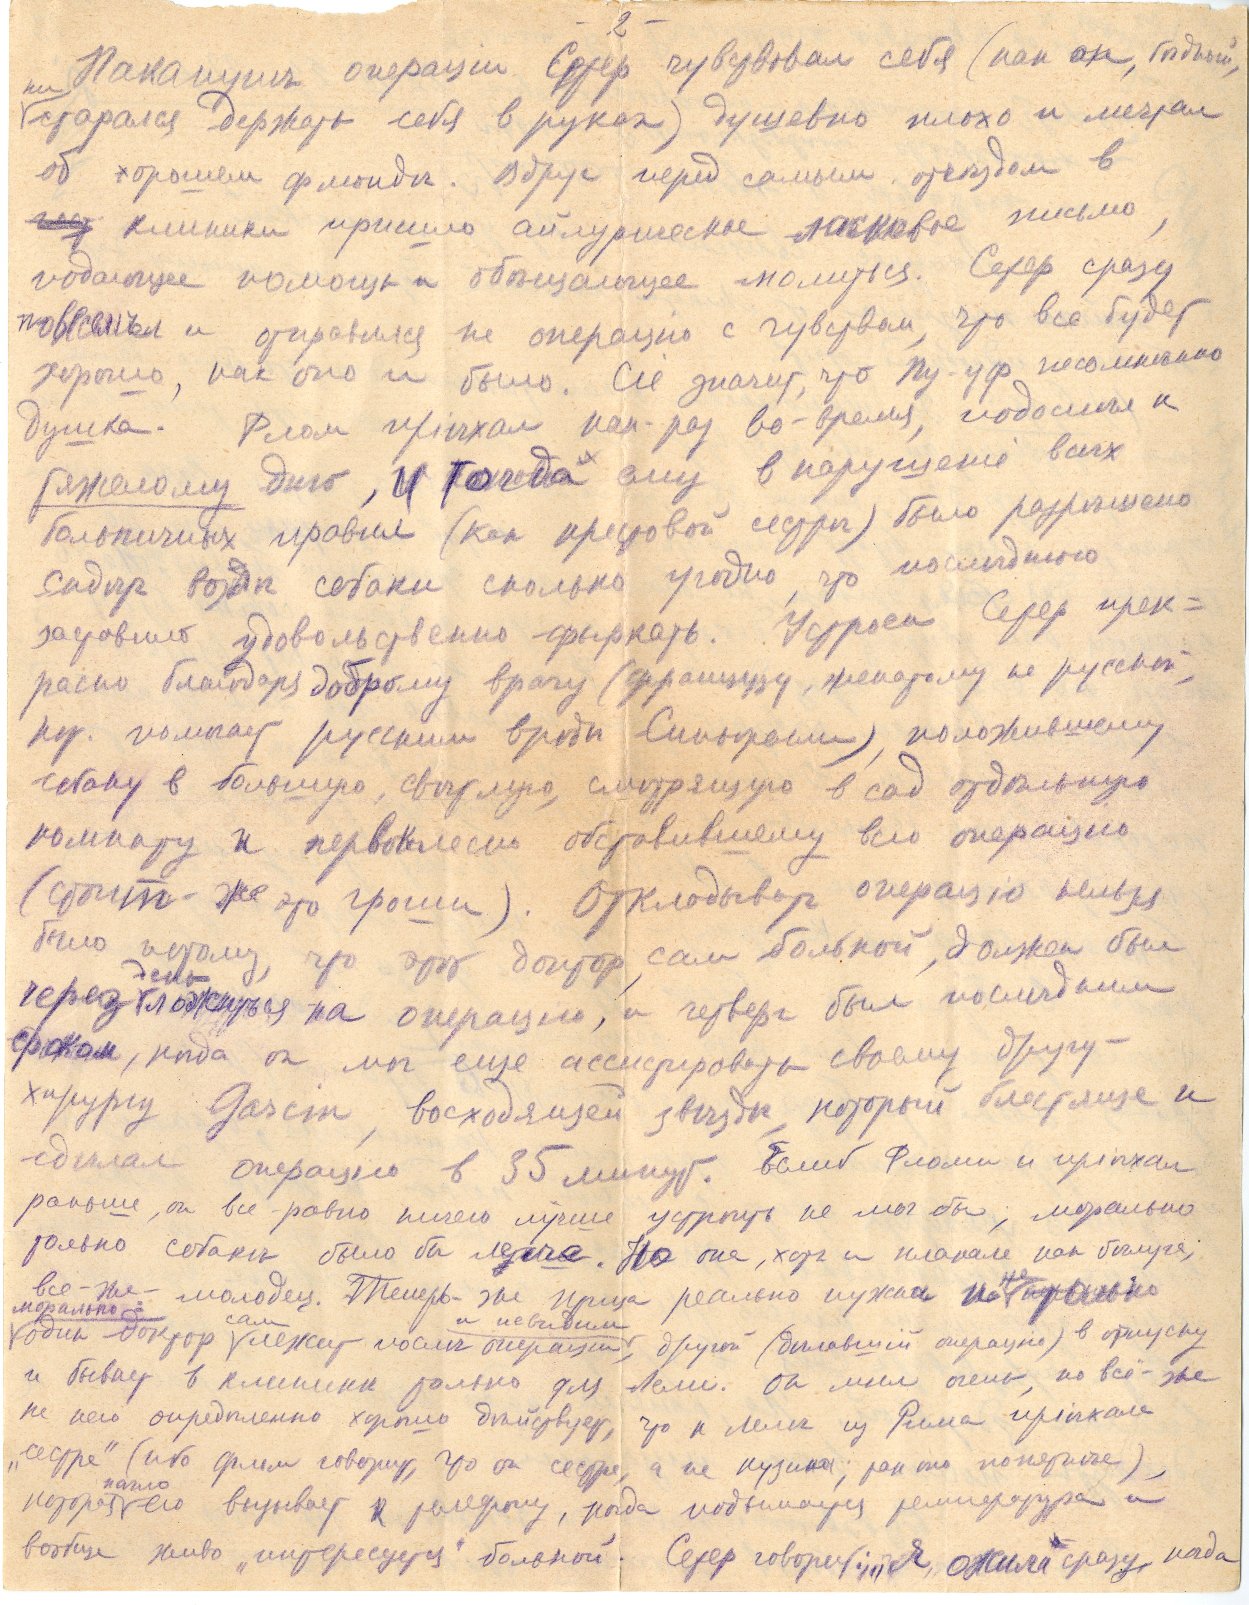 - 2 -
Наканунѣ операціи Сетер чувствовал себя (как он, бѣдный,
ни старался держать себя в руках) душевно плохо и мечтал
об хорошем флюидѣ. Вдруг перед самым отъѣздом в
клиники пришло айлурическое ласковое письмо,
подающее помощь и обѣщающее молиться. Сетер сразу
повеселѣл и отправился на операцію с чувством, что все будет
хорошо, как оно и было. Сіе значит, что Пу-уф несомнѣнно
душка. Флом пріѣхал как-раз во-время, поспѣл к
тяжелому дню, и тогда ему в нарушеніе всѣх
больничных правил (как крестовой сестрѣ) было разрѣшено
сидѣть возлѣ собаки сколько угодно, что послѣднюю
заставило удовольственно фыркать. Устроен Сетер прек=
расно благодаря доброму врачу (французу, женатому на русской,
кот. помогает русским вродѣ Синьораши), положившему
собаку в большую, свѣтлую, смотрящую в сад отдѣльную
комнату и первоклассно обставившему всю операцію
(стоит-же это гроши). Откладывать операцію нельзя
было потому, что этот доктор, сам больной, должен был
через день ложиться на операцію, и четверг был послѣдним
сроком, когда он мог еще ассистировать своему другу-
хирургу Garcin, восходящей звѣздѣ, который блестяще и
сдѣлал операцію в 35 минут. Еслиб Флом и пріѣхал
раньше, он все равно ничего лучше устроить не мог бы, морально
только собакѣ было бы легче. Но она, хоть и плакала как бѣлуга,
все-же- молодец. Теперь-же птица реально нужна и не только
морально: один доктор сам лежит послѣ операціи и невидим, другой (дѣлавшій операцію) в отпуску
и бывает в клиникѣ только для Лели. Он мил очень, но всё-же
на него опредѣленно хорошо дѣйствует, что к Лелѣ из Рима пріѣхала
„сестра" (ибо флом говорит, что он сестра, а не кузина; так оно понятнѣе),
которая нагло его вызывает к телефону, когда подымается температура и
вообще живо „интересуется" больной. Сетер говорит: „Я ожила сразу, когда